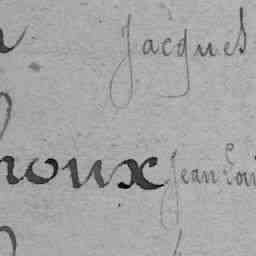 Jacques
houx Jean Loui